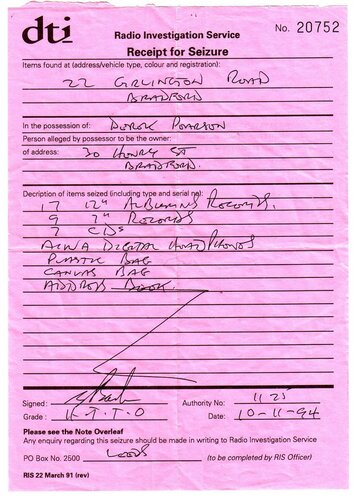 dti
Radio Investigation Service
No. 20752
Receipt for Seizure
Items found at (address/vehicle type, colour and registration):
22 GIRLINGTON ROAD
BRADFORD
In the possession of: DEREK PEARSON
Person alleged by possessor to be the owner:
of address: 30 HENRY ST
BRADFORD.
Decription of items seized (including type and serial no):
17 12" ALBUMS RECORDS.
9 7" RECORDS
7 CDs
AIWA DIGITAL HEADPHONES
PLASTIC BAG
CANVAS BAG
ADDRESS BOOK.
Signed:
Authority No: 1125
Grade: H.T.T.O
Date: 10-11-94
Please see the Note Overleaf
Any enquiry regarding this seizure should be made in writing to Radio Investigation Service
PO Box No. 2500 LEEDS (to be completed by RIS Officer)
RIS 22 March 91 (rev)